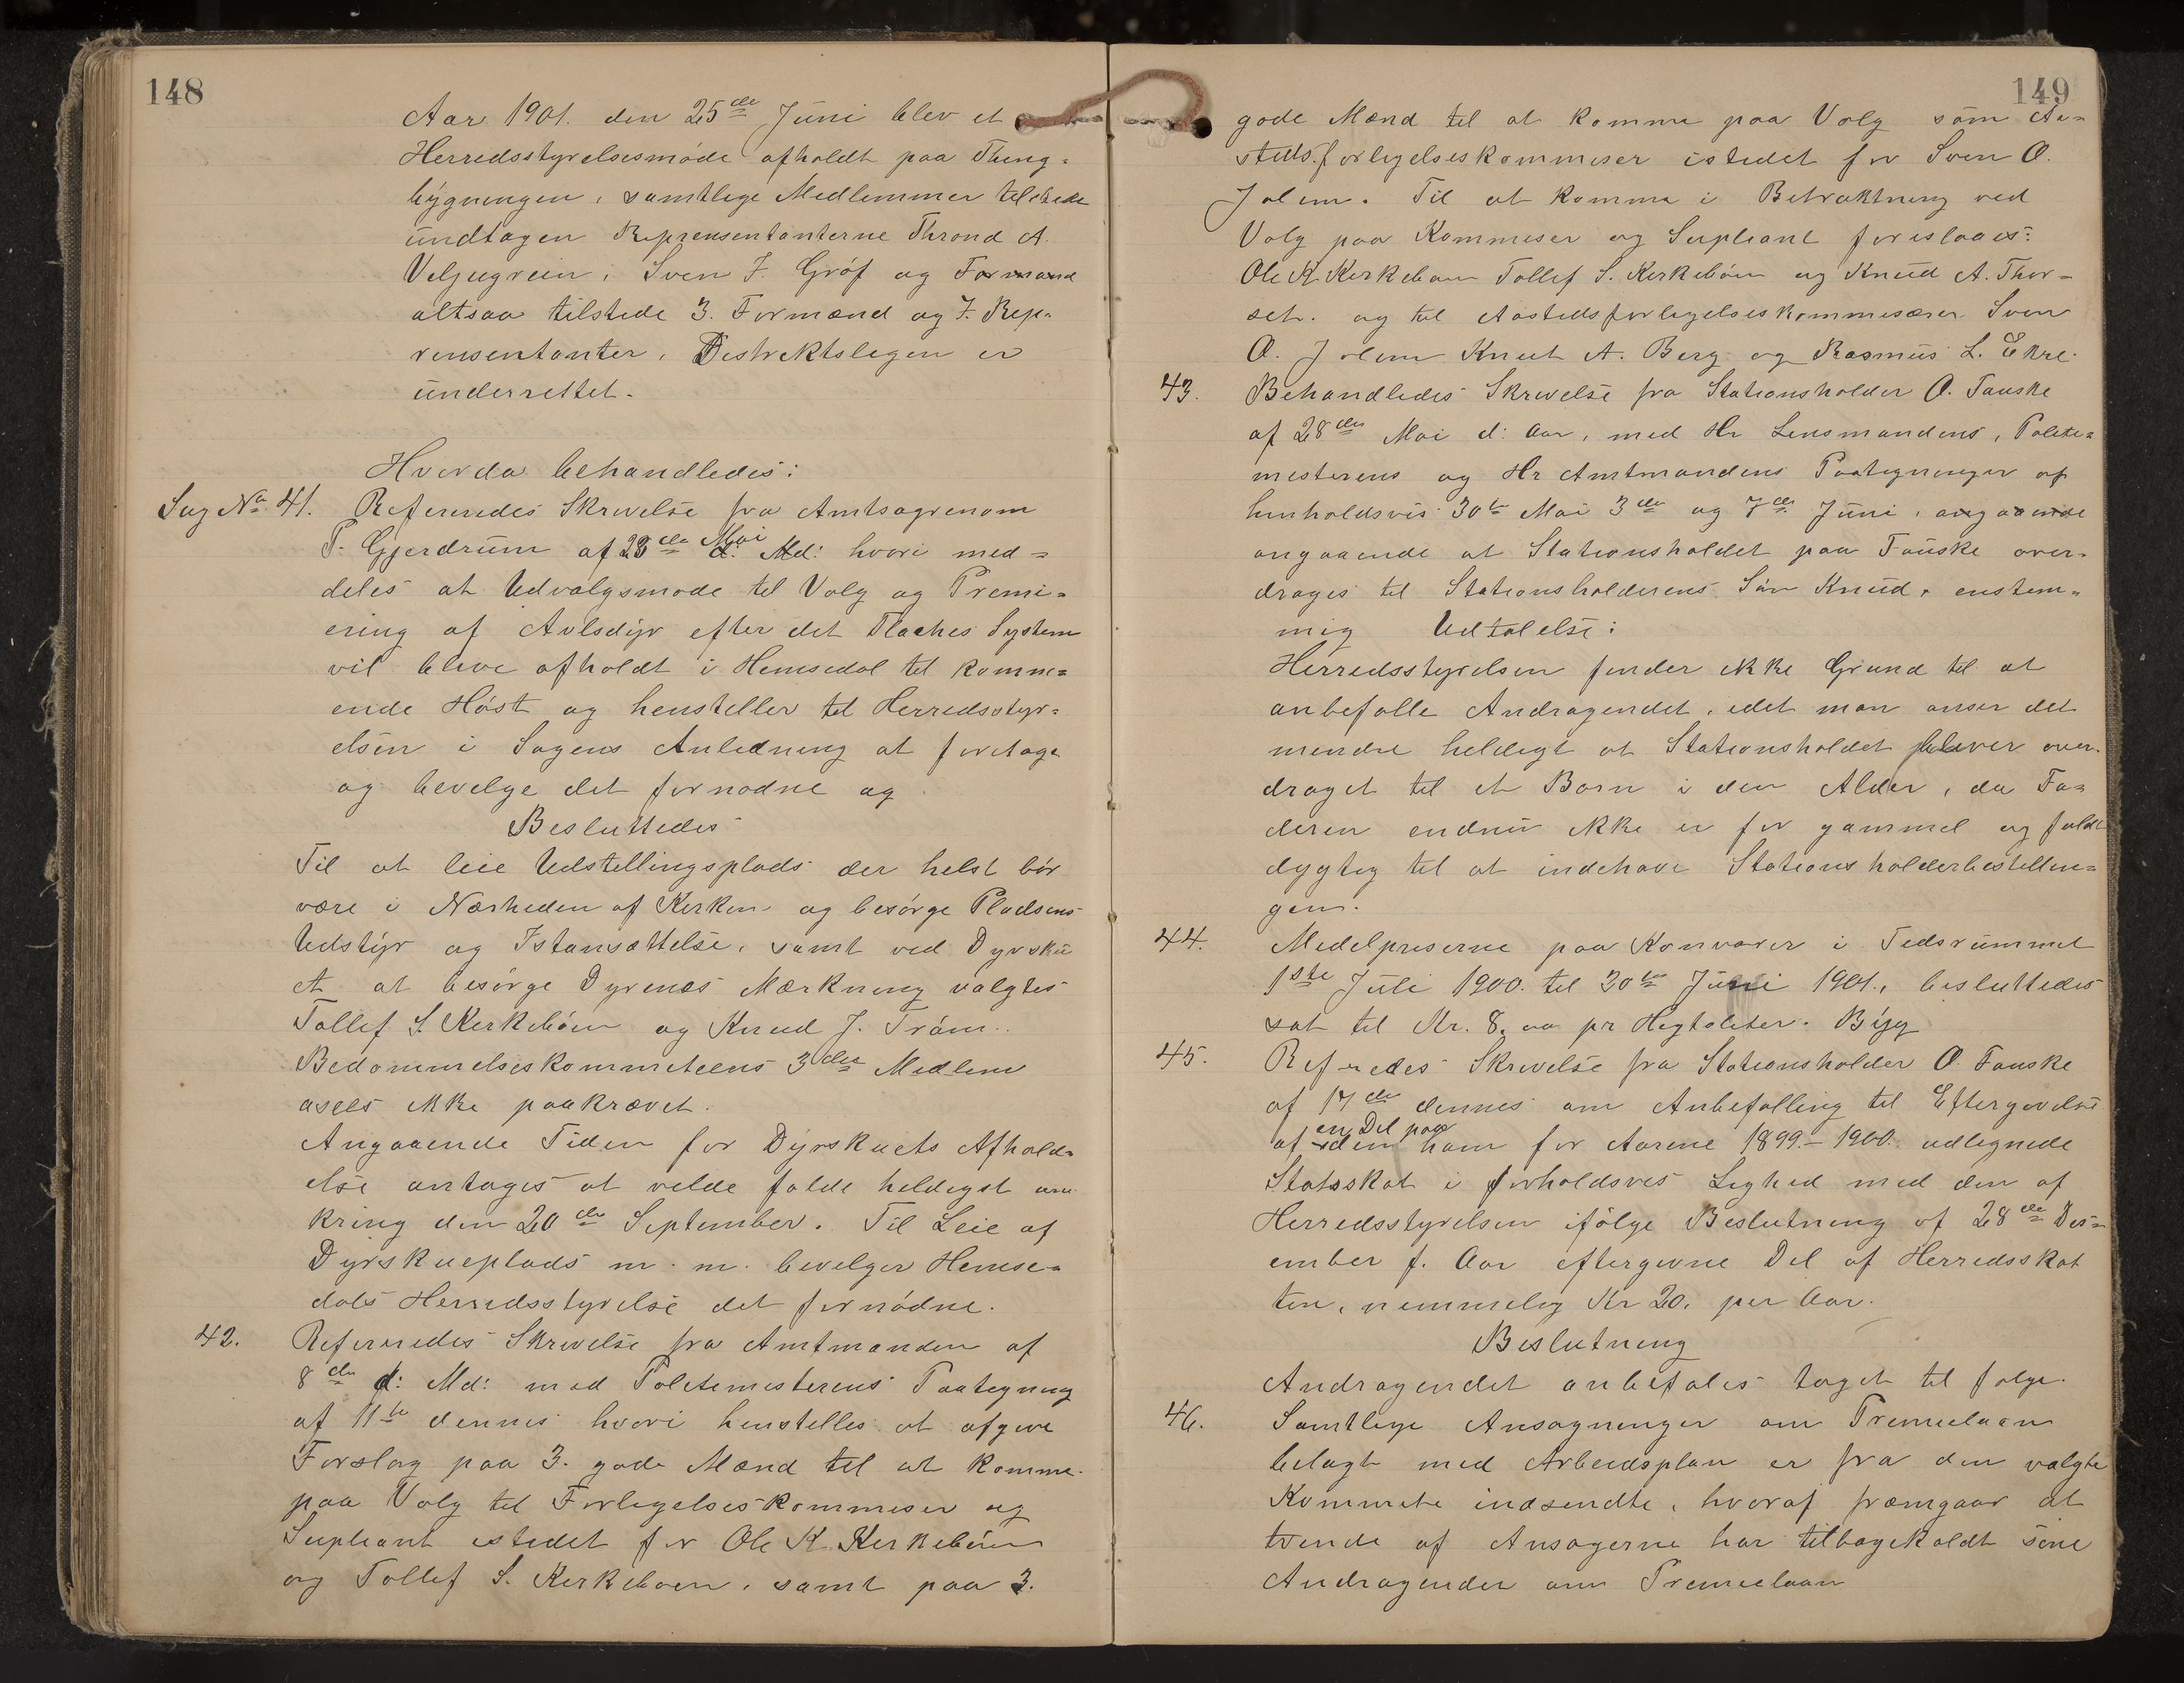 148
Aar 1901. den 25de Juni blev et
Herredsstyrelsesmøde afholdt paa Thing-
bygningen, samtlige Medlemmer tilstede
undtagen Reprensentanterne Thrond A.
Veljugrein, Sven J. Gróf og Formand
altsaa tilstede 3. Formænd og 7. Rep-
rensentanter, Distriktslegen er
underrettet.
Hvorda behandledes:
Sag No 41. Refereredes Skrivelse fra Amtsagronom
T. Gjerdrum af 28de Mai d: Md: hvori med-
deles at Udvalgsmøde til Valg og Premi-
ering af Avlsdyr efter det Flaches System
vil blive afholdt i Hemsedal til komm-
ende Høst og henstiller til Herredsstyr-
elsen i Sagens Anledning at foretage
og bevilge det fornødne og
Besluttedes
Til at leie Udstillingsplads der helst bør
være i Nærheden af Kirken og besørge Pladsens
Udstyr og Istansættelse, samt ved Dyrsku
et at besørge Dyrenes Mærkning valgtes
Tollef S. Kirkebøen og Knud J. Trøim.
Bedømmelseskommiteens 3die Medlem
asees ikke paakrævet.
Angaaende Tiden for Dyrskuets Afhold-
else antages at vilde falde heldigst om
kring den 20de September. Til Leie af
Dyrskueplads m. m. bevilger Hemse-
dals Herredsstyrelse det fornødne.
42. Refereredes Skrivelse fra Amtmanden af
8de d: Md: med Politimesterens Paategning
af 11te dennes hvori henstilles at afgive
Forslag paa 3. gode Mænd til at komme
paa Valg til Forligelseskommisær og
Supleant istedet for Ole K. Kirkebøen
og Tollef S. Kirkebøen, samt paa 3.
149
gode Mænd til at komme paa Valg som Aa-
stedsforligelseskommisær istedet for Sven O.
Jolem. Til at komme i Betraktning ved
Valg paa Kommisær og Supleant foreslaaes:
Ole K. Kirkebøen Tollef S. Kirkebøen og Knud A. Thor-
set. og til Aastedsforligelseskommisærer Sven
O. Jolem Knut A. Berg og Rasmus L. Ekre.
43. Behandledes Skrivelse fra Stationsholder O. Fauske
af 28de Mai d: Aar, med Hr Lensmandens, Politi-
mesterens og Hr Amtmandens Paategninger af
henholdsvis 30te Mai 3de og 7de Juni, angaaende
angaaende at Stationsholdet paa Fauske over-
drages til Stationsholderens Søn Knud, enstem-
mig Udtalelse:
Herredsstyrelsen finder ikke Grund til at
anbefalle Andragendet, idet man anser det
mindre heldigt at Stationsholdet bliver over-
draget til et Barn i den Alder, da Fa-
deren endnu ikke er for gammel og fuldt
dygtig til at indehave Stationsholderbestillin-
gen.
44. Medelpriserne paa Kornvarer i Tidsrummet
1ste Juli 1900. til 30te Juni 1901., besluttedes
sat til Kr. 8, oo pr Hegtoliter. Byg
45. Refredes Skrivelse fra Stationsholder O. Fauske
af 17de dennes om Anbefalling til Eftergivelse
af en Del paa ham for Aarene 1899.-1900. udlignede
Statsskat i forholdsvis Lighed med den af
Herredsstyrelsen ifølge Beslutning af 28de Des-
ember f. Aar eftergivne Del af Herredsskat
ten, nemmelig Kr 20, per Aar.
Beslutning
Andragendet anbefales taget til følge.
46. Samtlige Ansøgninger om Premielaan
belagt med Arbeidsplan er fra den valgte
Kommite indsendte, hvoraf fræmgaar at
tvende af Ansøgerne har tilbagekaldt sine
Andragender om Premielaan